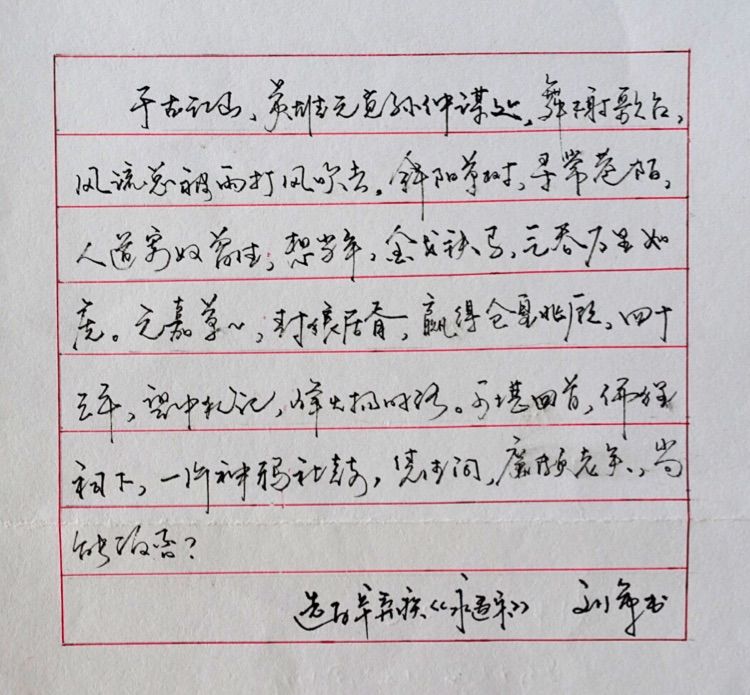 千古江山，英雄无觅孙仲谋处，舞榭歌台，
风流总被雨打风吹去。斜阳草树，寻常巷陌，
人道寄奴曾住，想当年，金戈铁马，气吞万里如
虎。元嘉草草，封狼居胥，赢得仓皇北顾，四十
三年，望中犹记，烽火扬州路。可堪回首，佛狸
祠下，一片神鸦社鼓，凭谁问，廉颇老矣，尚
能饭否？
选自辛弃疾《永遇乐》 刘军书